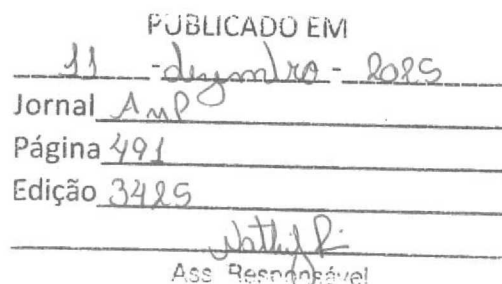 PUBLICADO EM
11 - dezembro - 2025
Jornal AMP
Página 491
Edição 3425
Ass Responsável